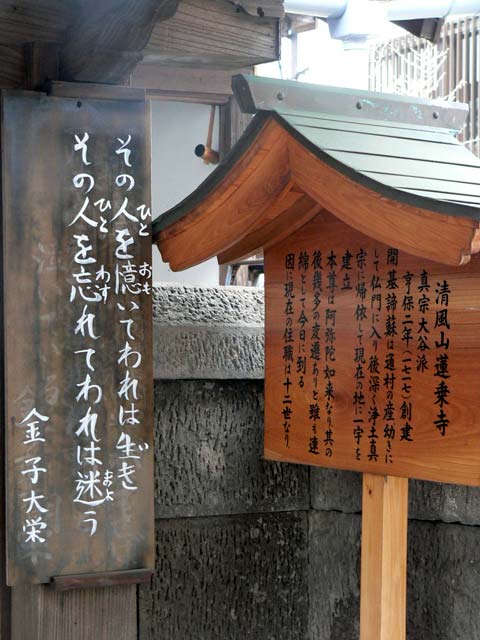 清風山蓮乗寺
真宗大谷派
享保二年(一七一七)創建
開基諦蘇は通村の産幼きに
して仏門に入り後深く浄土真
宗に帰依して現在の地に一宇を
建立
本尊は阿弥陀如来なり其の
後幾多の変遷ありと雖も連
綿として今日に到る
因に現在の住職は十二世なり
ひと おも い
その人を憶いてわれは生き
ひと わす まよ
その人を忘れてわれは迷う
金子大栄